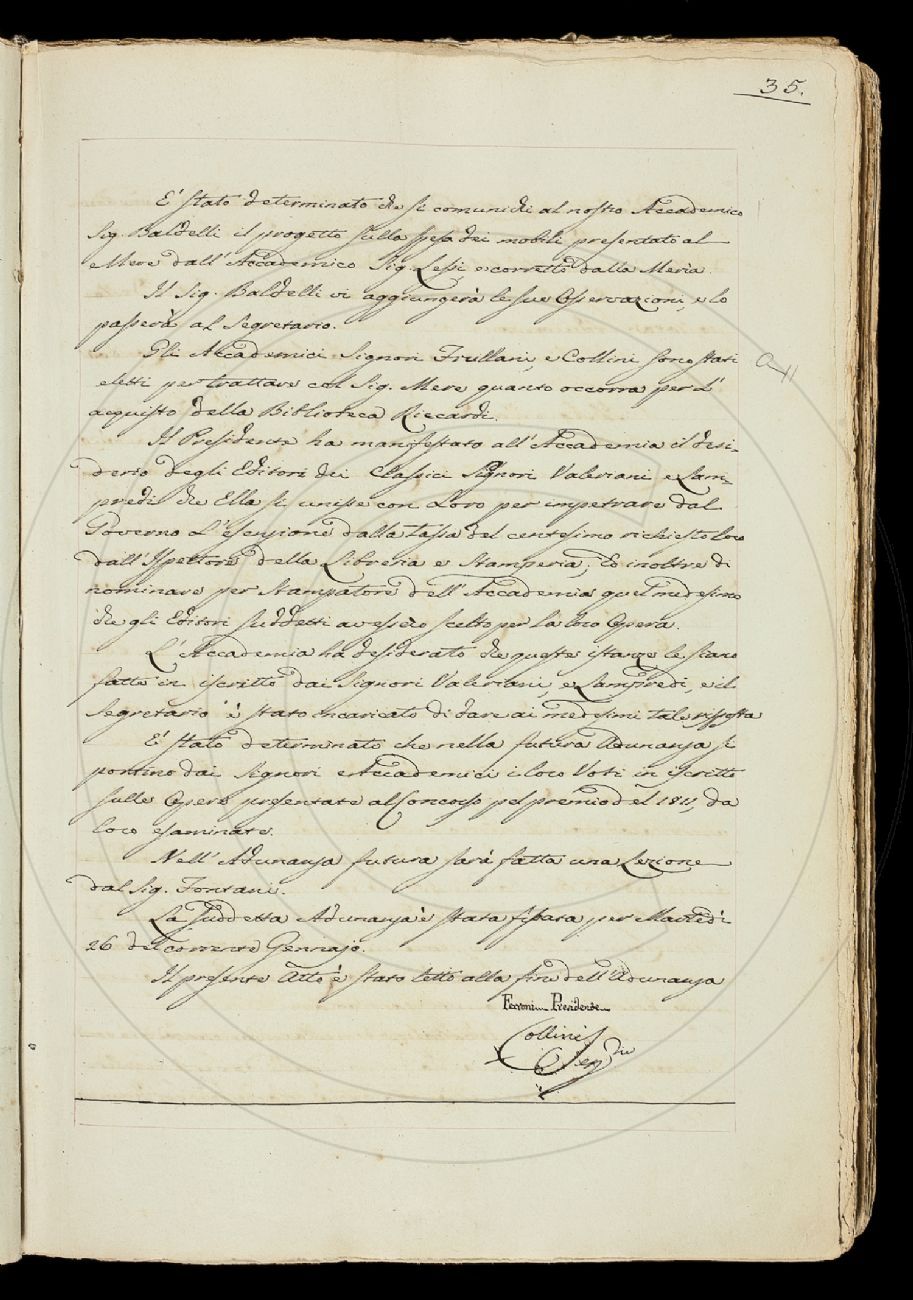 35.
E' stato determinato che si comunichi al nostro Accademico
Sig. Baldelli il progetto sulla spesa dei mobili presentato al
Mere dall'Accademico Sig. Lessi, e corretto dalla Merìa.
Il Sig. Baldelli vi aggiungerà le sue Osservazioni, e lo
passerà al Segretario.
Gli Accademici Signori Frullani, e Collini sono stati
eletti per trattare col Sig. Mere quanto occorra per l'
acquisto della Biblioteca Riccardi.
Il Presidente ha manifestato all'Accademia il desi-
derio degli Editori dei Classici Signori Valeriani e Lam-
predi che Ella si unisse con Loro per impetrare dal
Governo L'esenzione dalla tassa del centesimo richiesto loro
dall'Ispettore della Libreria e Stamperia; Ed inoltre di
nominare per Stampatore dell'Accademia quel medesimo
che gli Editori suddetti avessero scelto per la loro Opera.
L'Accademia ha desiderato che queste istanze le siano
fatte in iscritto dai Signori Valeriani, e Lampredi, e il
Segretario è stato incaricato di dare ai medesimi tale risposta
E' stato determinato che nella futura Adunanza si
portino dai Signori Accademici i loro Voti in iscritto
sulle Opere presentate al Concorso pel premio del 1811, da
loro esaminate.
Nell'Adunanza futura sarà fatta una Lezione
dal Sig. Fontani.
La suddetta Adunanza è stata fissata per Martedì
26 del corrente Gennajo.
Il presente Atto è stato letto alla fine dell'Adunanza
Ferroni Presidente
Collini Seg.rio